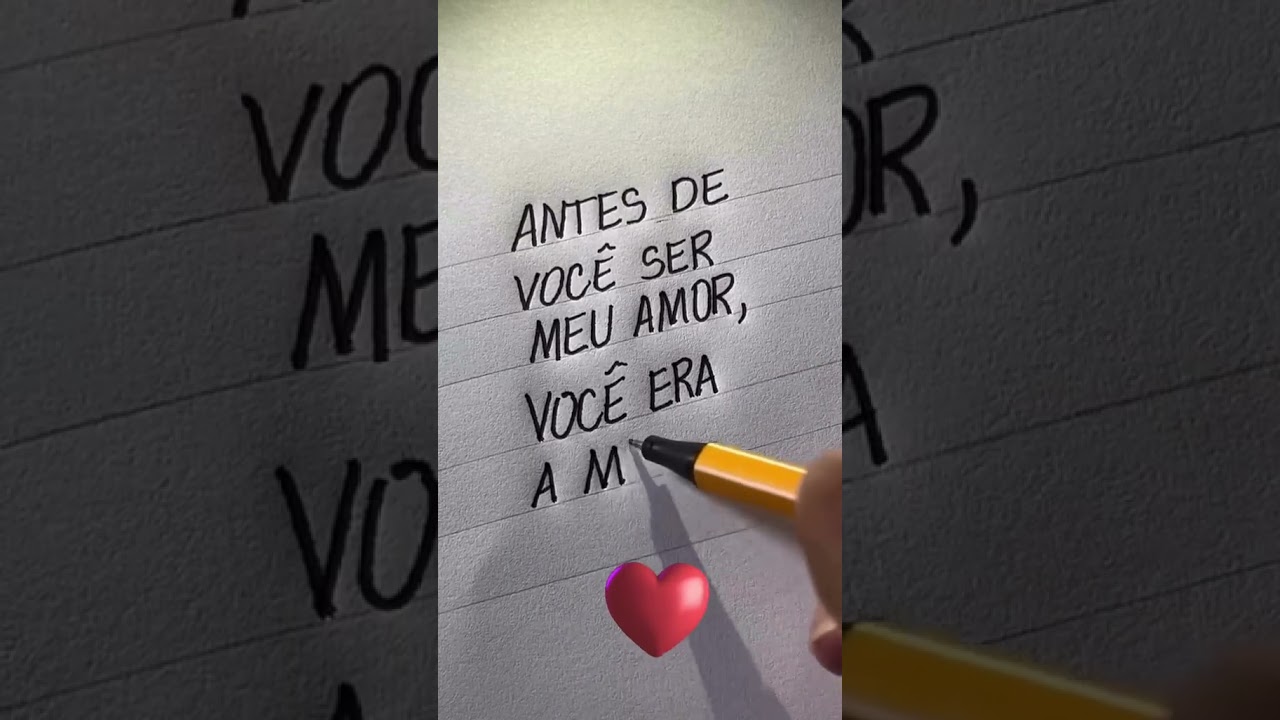 ANTES DE
VOCÊ SER
MEU AMOR,
VOCÊ ERA
A M